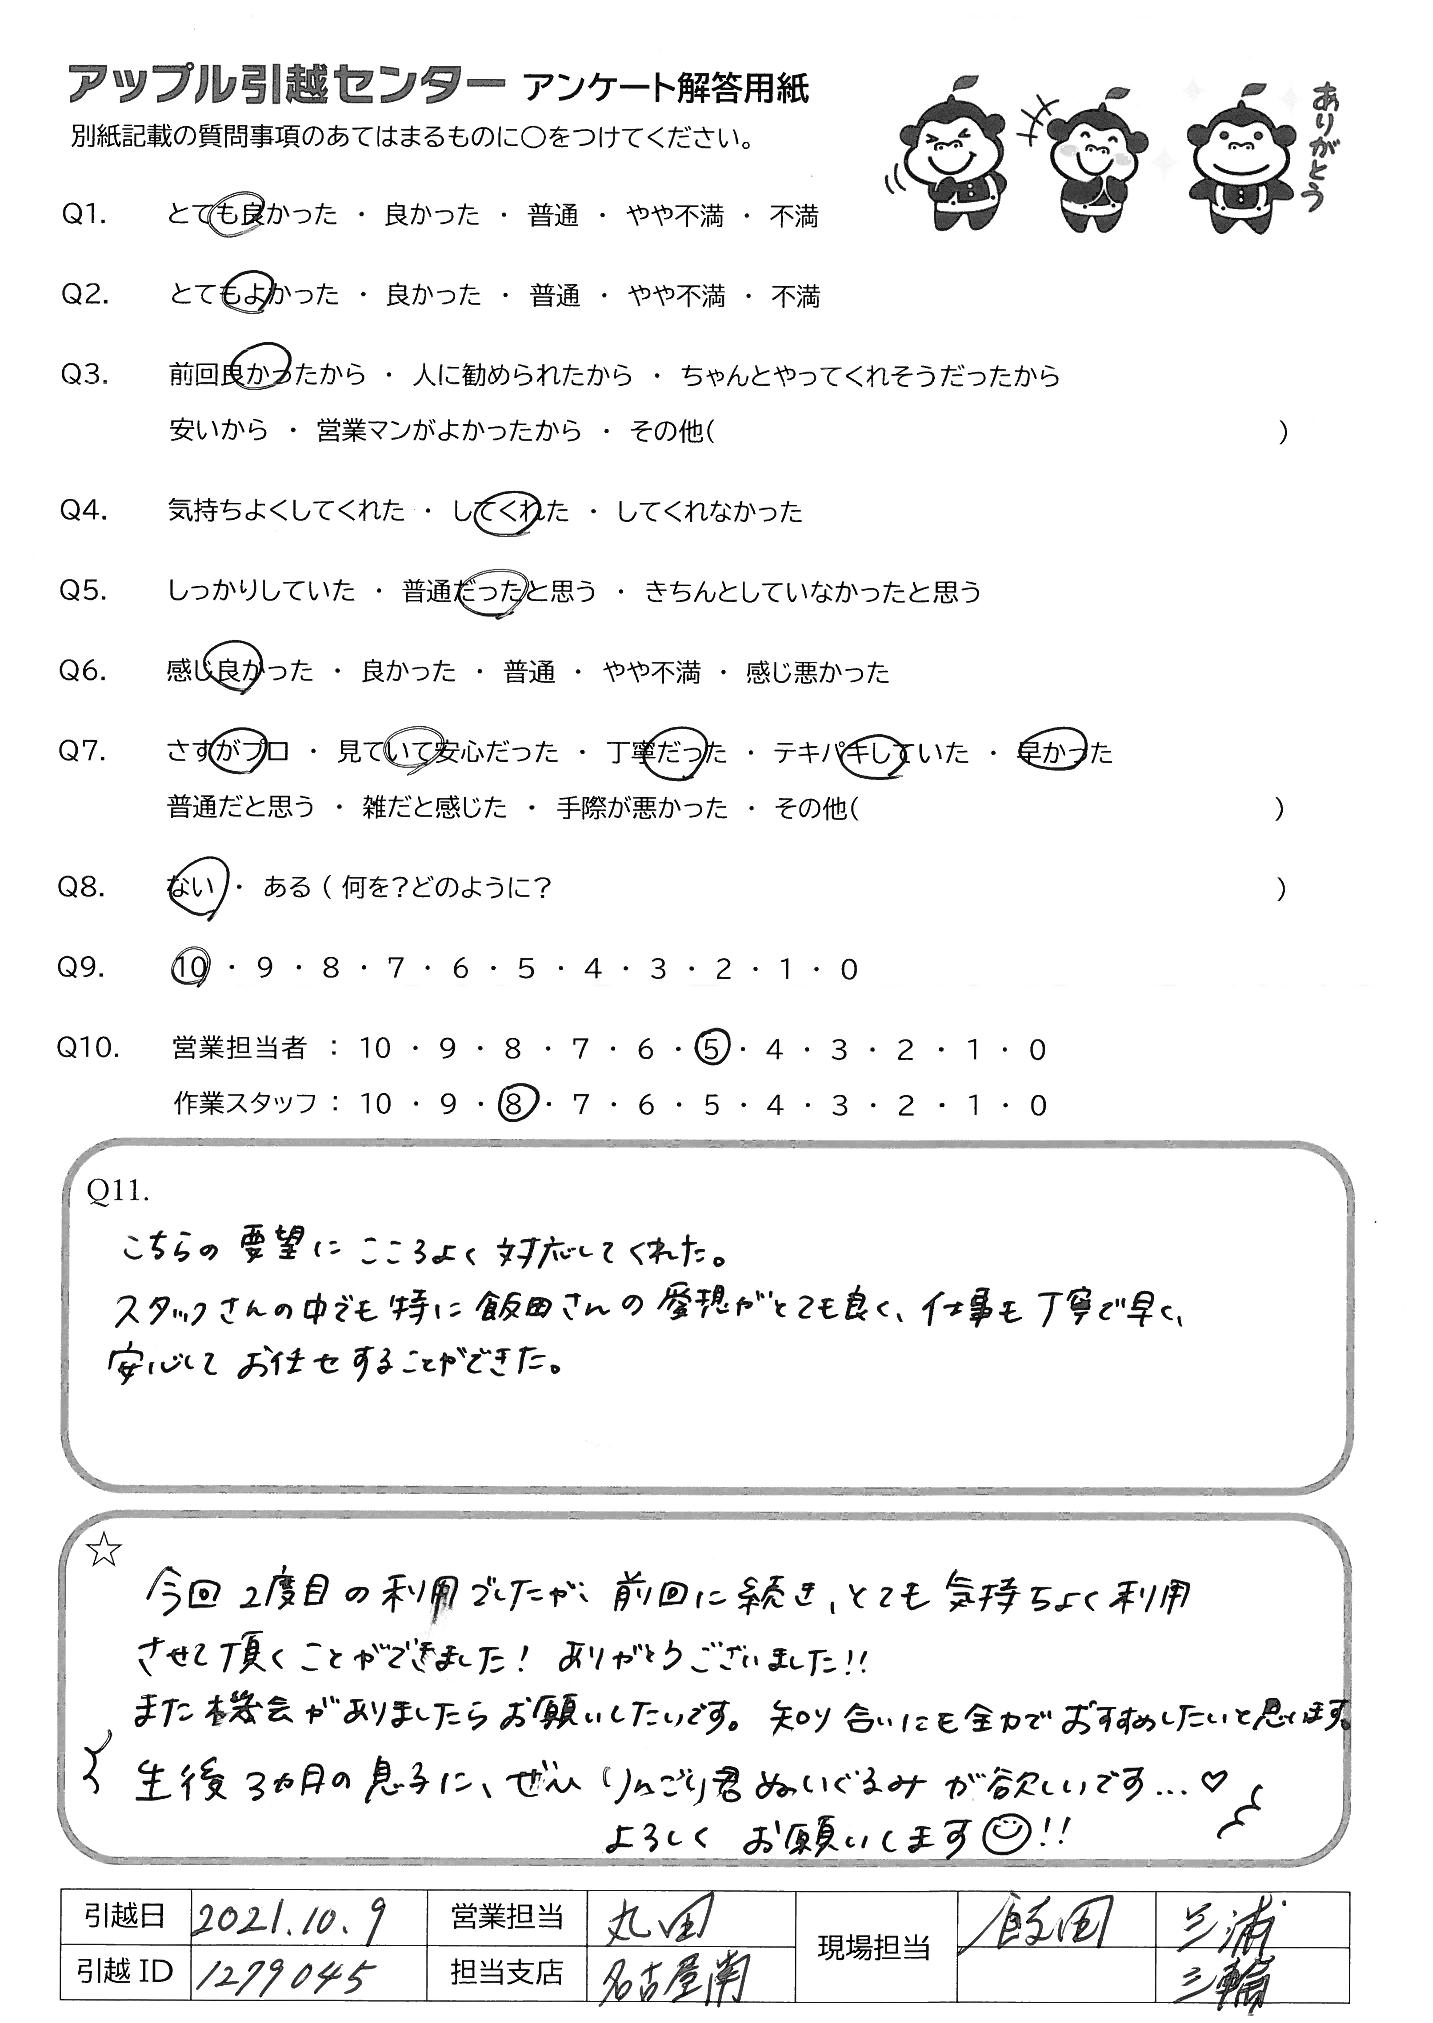 アップル引越センター アンケート解答用紙
別紙記載の質問事項のあてはまるものに〇をつけてください。
ありがとう
Q1. とても良かった ・ 良かった ・ 普通 ・ やや不満 ・ 不満
Q2. とてもよかった ・ 良かった ・ 普通 ・ やや不満 ・ 不満
Q3. 前回良かったから ・ 人に勧められたから ・ ちゃんとやってくれそうだったから
安いから ・ 営業マンがよかったから ・ その他( )
Q4. 気持ちよくしてくれた ・ してくれた ・ してくれなかった
Q5. しっかりしていた ・ 普通だったと思う ・ きちんとしていなかったと思う
Q6. 感じ良かった ・ 良かった ・ 普通 ・ やや不満 ・ 感じ悪かった
Q7. さすがプロ ・ 見ていて安心だった ・ 丁寧だった ・ テキパキしていた ・ 早かった
普通だと思う ・ 雑だと感じた ・ 手際が悪かった ・ その他( )
Q8. ない ・ ある ( 何を?どのように? )
Q9. 10 ・ 9 ・ 8 ・ 7 ・ 6 ・ 5 ・ 4 ・ 3 ・ 2 ・ 1 ・ 0
Q10. 営業担当者 : 10 ・ 9 ・ 8 ・ 7 ・ 6 ・ 5 ・ 4 ・ 3 ・ 2 ・ 1 ・ 0
作業スタッフ : 10 ・ 9 ・ 8 ・ 7 ・ 6 ・ 5 ・ 4 ・ 3 ・ 2 ・ 1 ・ 0
Q11.
こちらの要望にこころよく対応してくれた。
スタッフさんの中でも特に飯田さんの愛想がとても良く、仕事も丁寧で早く、
安心してお任せすることができた。
☆
今回2度目の利用でしたが、前回に続き、とても気持ちよく利用
させて頂くことができました! ありがとうございました!!
また機会がありましたらお願いしたいです。知り合いにも全力でおすすめしたいと思います。
生後3カ月の息子に、ぜひりんごり君ぬいぐるみが欲しいです…♡
よろしくお願いします☺!!
引越日 2021.10.9 営業担当 丸田 現場担当 飯田 三浦
引越ID 1279045 担当支店 名古屋南 三輪